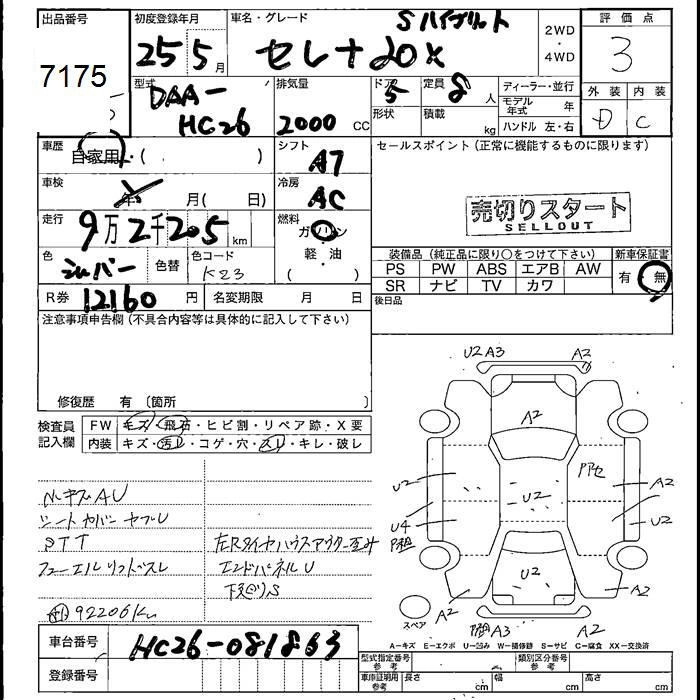 出品番号
7175
初度登録年月
25 5月
車名・グレード
Sハイブリット
セレナ 20X
2WD
・
4WD
評価点
3
外装 内装
D C
型式
DAA-
HC26
排気量
2000 CC
ドア
5
形状
定員
8人
積載
kg
ディーラー・並行
モデル年式 年
ハンドル 左・右
車歴
自家用・( )
シフト
A7
セールスポイント(正常に機能するものに限ります)
車検
年 月( 日)
冷房
AC
売切りスタート
SELLOUT
走行
9万2千205km
燃料
ガソリン
軽・油
( )
色
シルバー
色替
色コード
K23
装備品(純正品に限り○をつけて下さい)
新車保証書
PS PW ABS エアB AW
SR ナビ TV カワ
有 無
R券 12160円
名変期限 月 日
後日品
注意事項申告欄(不具合内容等は具体的に記入して下さい)
修復歴 有〔箇所 〕
検査員
記入欄
FW キズ・飛石・ヒビ割・リペア跡・X要
内装 キズ・汚レ・コゲ・穴・スレ・キレ・破レ
U2 A3 A2
A2
U2 U2 A2
U4 U2
U2
A2 A2
A3 A2
スペア
シートカバー ヤブレ
STT
エンドパネルU
下廻りS
92206Km
A=キズ E=エクボ U=凹み W=補修跡 S=サビ C=腐食 XX=交換済
車台番号
HC26-081863
登録番号
型式指定番号
参考
類別区分番号
参考
車庫証明用
参考
長さ cm 幅 cm 高さ cm